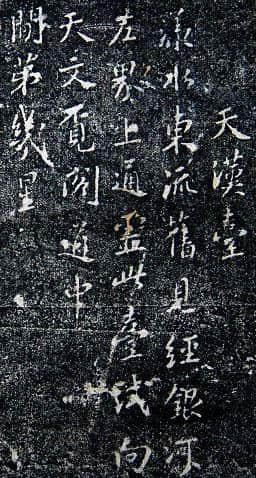 天漢臺
漾水東流舊見經銀河
左界上通靈此臺試向
天文覓閣道中
間第幾星